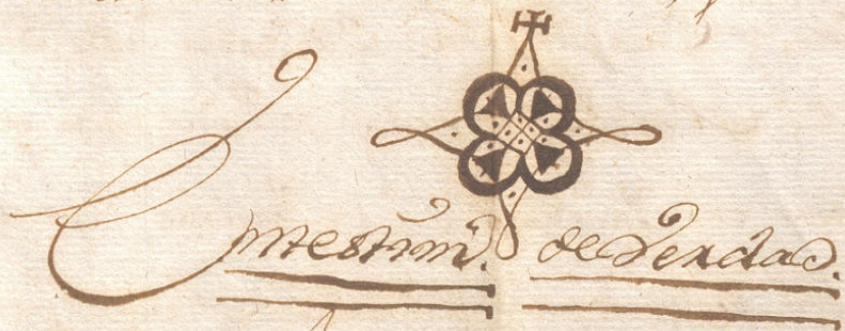 Entestim̃. deVerdad.